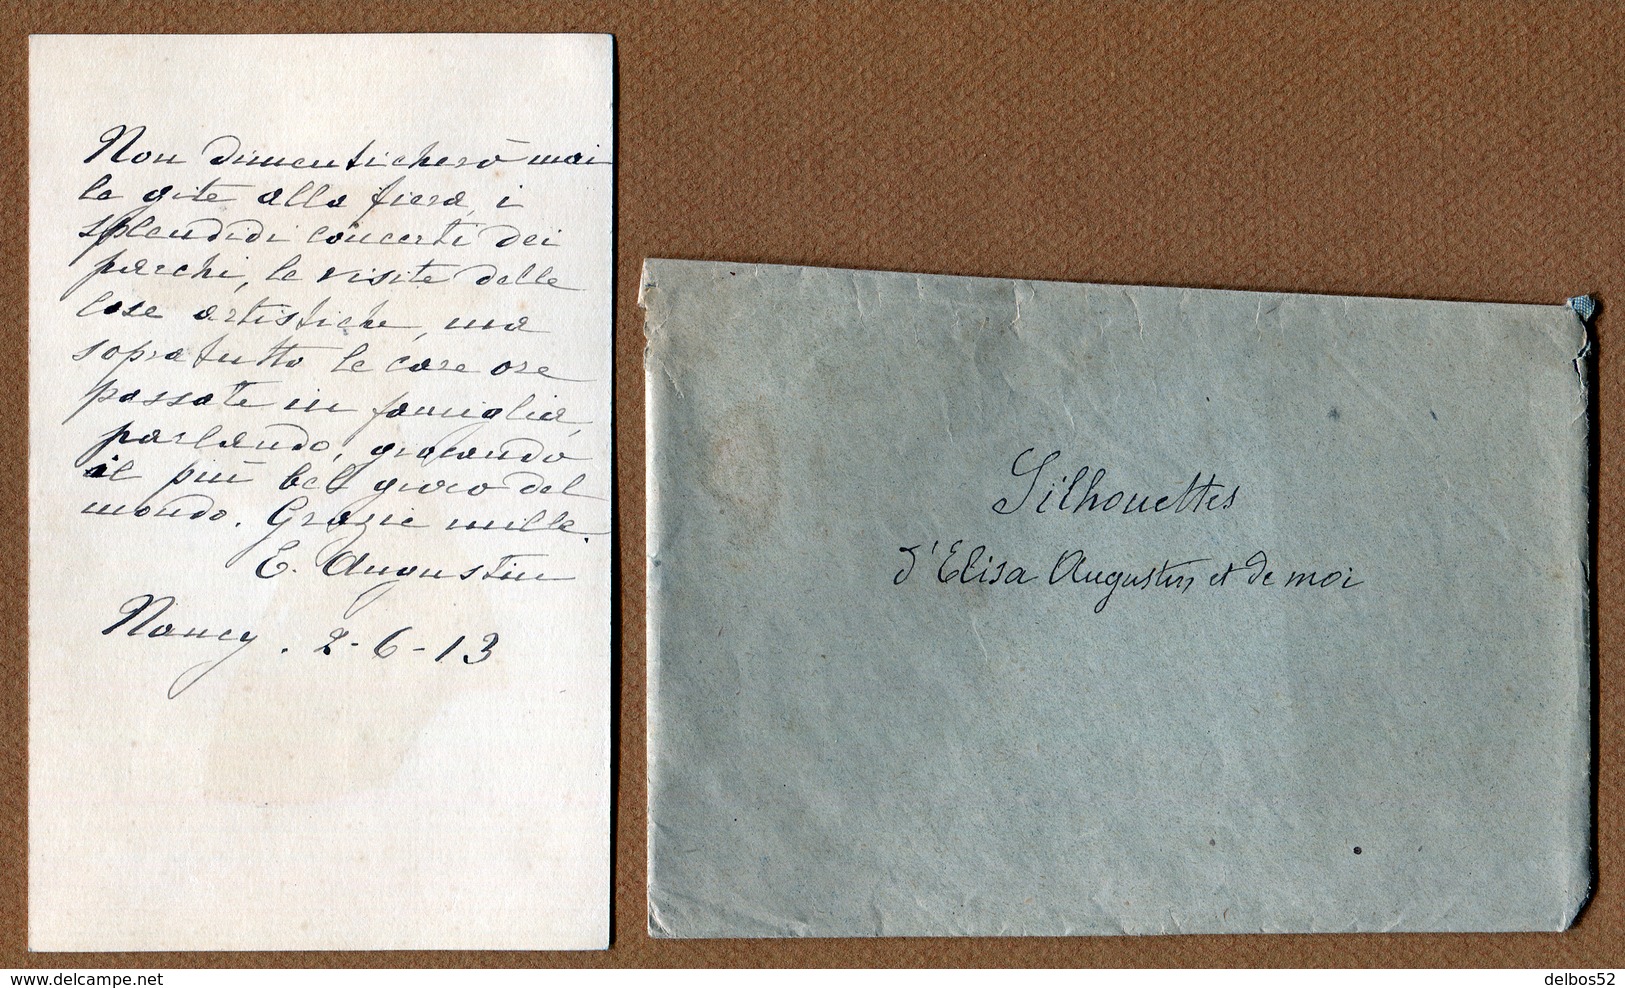 Non dimenticherò mai
le gite alla fiera, i
splendidi concerti dei
parchi, le visite delle
cose artistiche, ma
sopratutto le care ore
passate in famiglia,
parlando, giocando
il più bel gioco del
mondo. Grazie mille.
E. Augustin
Nancy. 2-6-13
Silhouettes
d'Elisa Augustin et de moi
delbos52